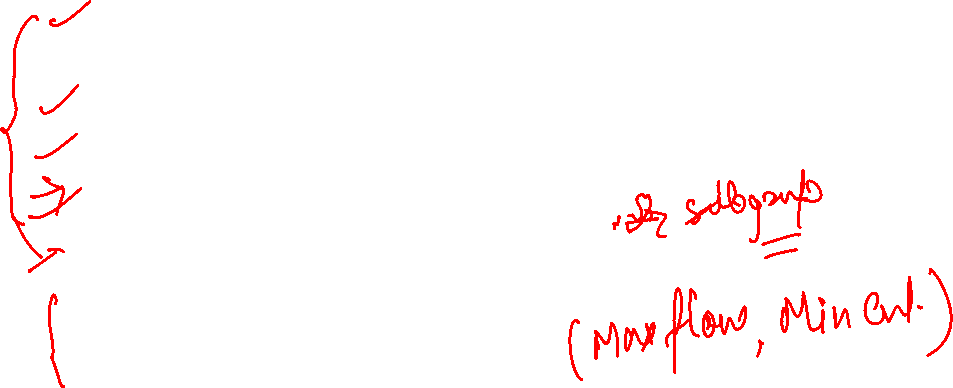 subgraph
(Max flow, Min Cut.)